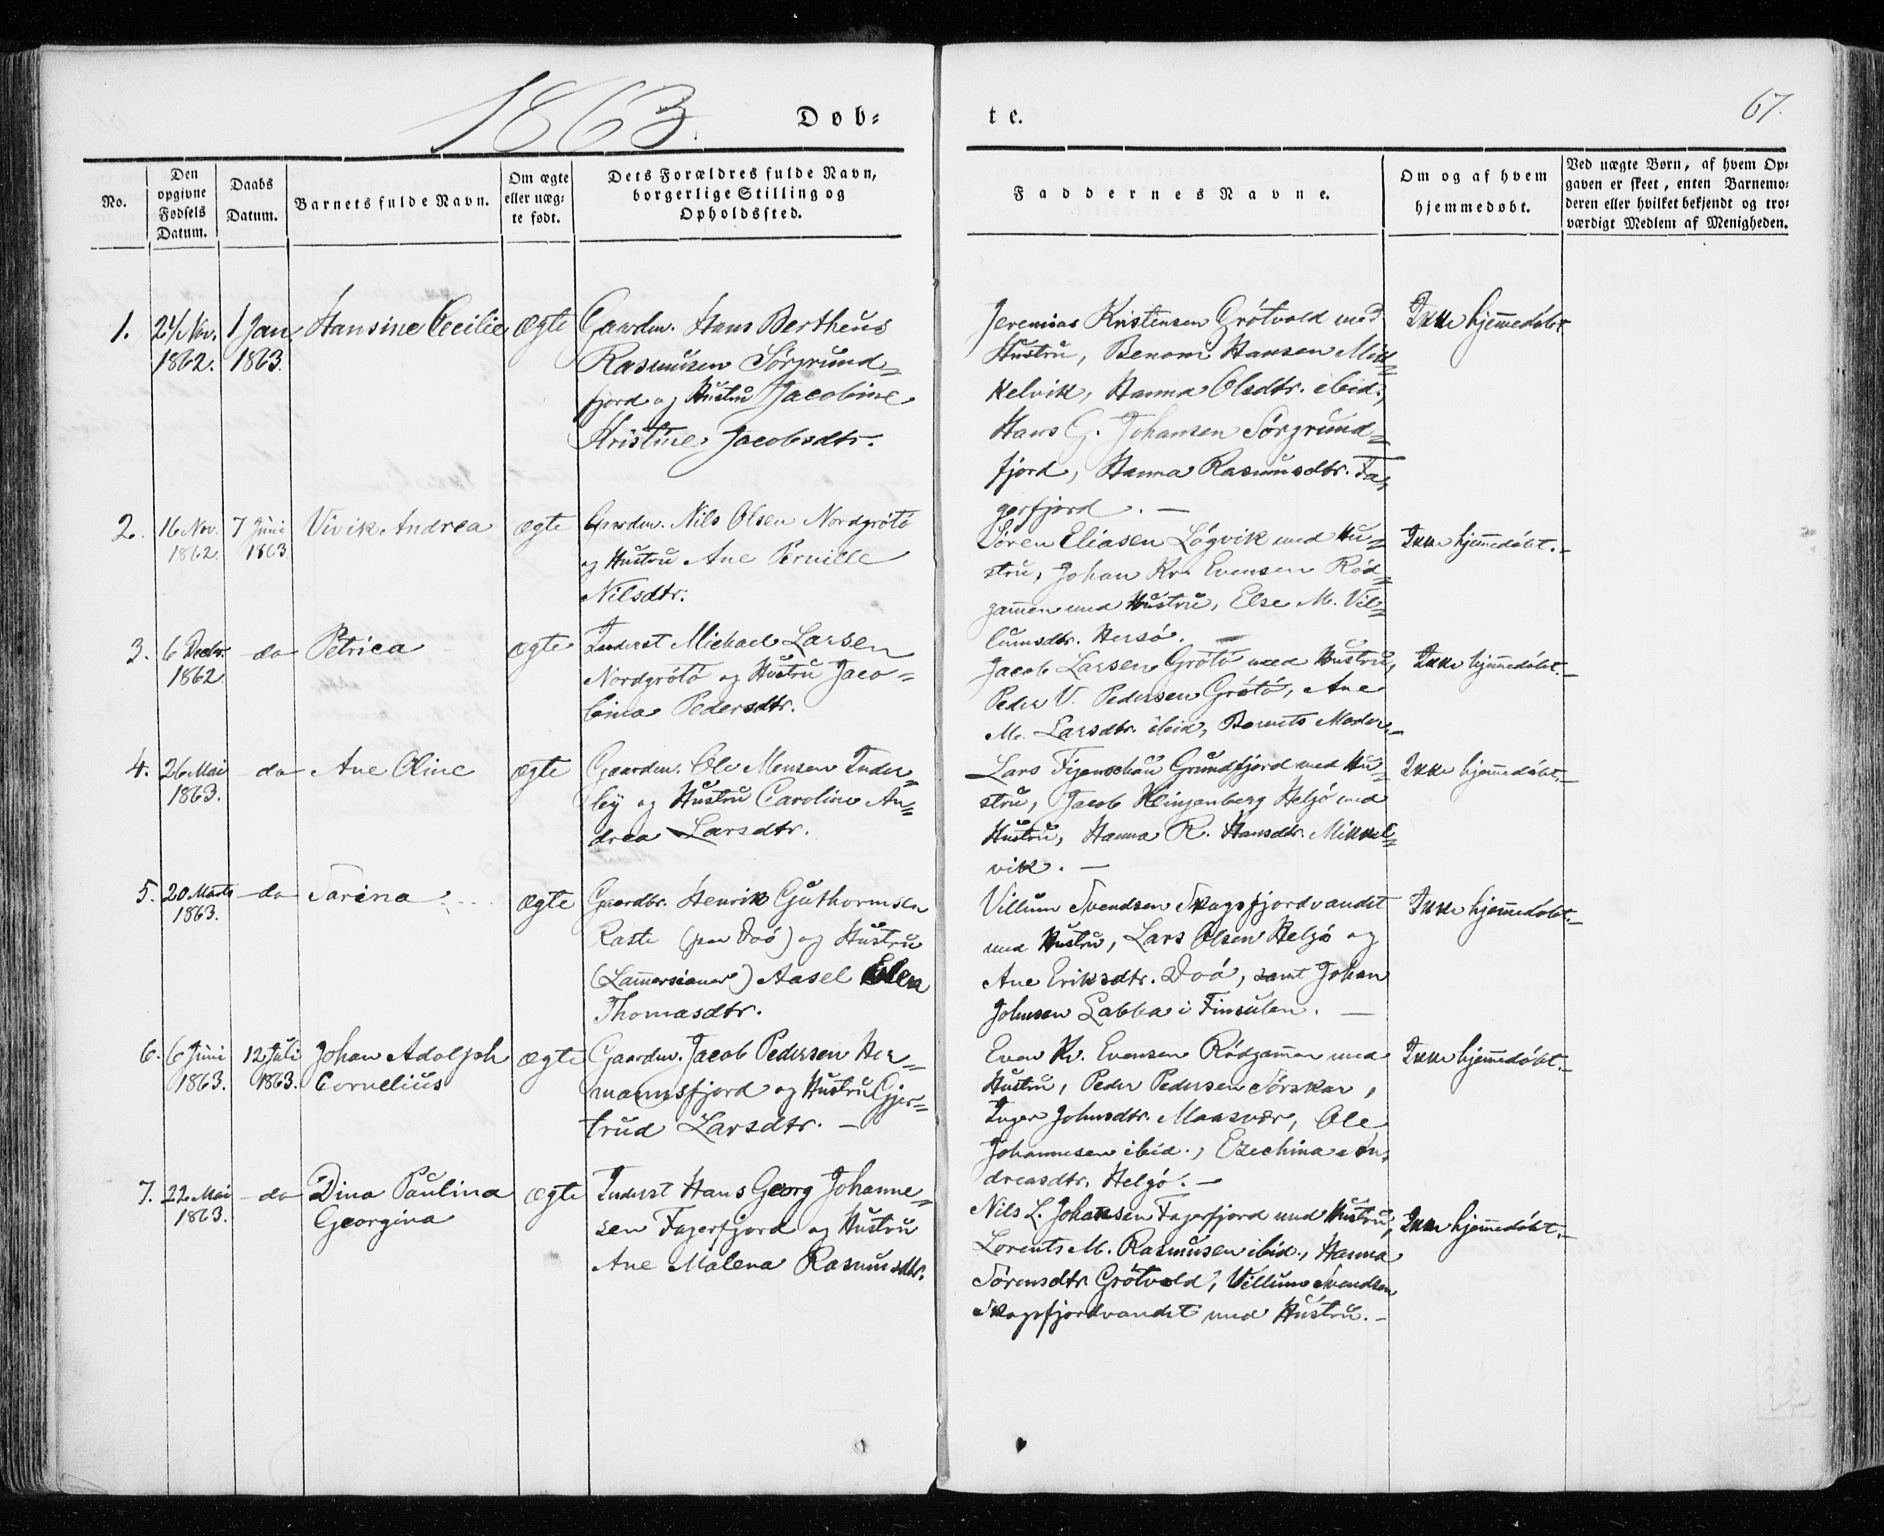 1863.
Døb-
te.
67.
No.
Den opgivne Fødsels Datum.
Daabs Datum.
Barnets fulde Navn.
Om ægte eller uægte født.
Dets Forældres fulde Navn, borgerlige Stilling og Opholdssted.
Faddernes Navne.
Om og af hvem hjemmedøbt.
Ved uægte Børn, af hvem Opgaven er skeet, enten Barnemoderen eller hvilket bekjendt og troværdigt Medlem af Menigheden.
1. 24 Nov. 1862. 1 Jan 1863. Hansine Cecilie ægte
Gaardm. Hans Bertheus
Rasmusen Sørgrund-
fjord og Hustru Jacobine
Kristine Jacobsdtr.
Jeremias Kristensen Grøtvold med
Hustru, Benoni Hansen Mik-
kelvik, Hanna Olsdtr. ibid.,
Hans G. Johansen Sørgrund-
fjord, Hanna Rasmusdtr. Fa-
gerfjord. —
Ikke hjemmedøbt
2. 16 Nov. 1862. 7 Juni 1863 Vivik Andrea ægte
Gaardm. Nils Olsen Nordgrøtø
og Hustru Ane Pernille
Nilsdtr.
Søren Eliasen Løgvik med Hu-
stru, Johan Kr. Evensen Rød-
gammen med Hustru, Else M. Vil-
lumsdtr. Hersø. —
Ikke hjemmedøbt. —
3. 6 Decbr. 1862 do Petrica ægte
Inderst Michael Larsen
Nordgrøtø og Hustru Jaco-
bina Pedersdtr.
Jacob Larsen Grøtø med Hustru,
Peder V. Pedersen Grøtø, Ane
M. Larsdtr. ibid, Barnets Moder. —
Ikke hjemmedøbt. —
4. 26 Mai 1863. do Ane Oline ægte
Gaardm. Ole Monsen Inder-
by og Hustru Caroline An-
drea Larsdtr.
Lars Figenschau Grundfjord med Hu-
stru, Jacob Klingenberg Helgø med
Hustru, Hanna R. Hansdtr. Mikkel-
vik. —
Ikke hjemmedøbt. —
5. 20 Marts 1863. do Sarina ægte
Gaardbr. Henrik Guthormsen
Raste (paa Doø) og Hustru
(Lammersianer) Aasel Elen
Thomasdtr.
Villum Svendsen Skogsfjordvandet
med Hustru, Lars Olsen Helgø og
Ane Eriksdtr. Doø, samt Johan
Johnsen Labba i Finsulen. —
Ikke hjemmedøbt. —
6. 6 Juni 1863. 12 Juli 1863. Johan Adolph
Cornelius ægte
Gaardm. Jacob Pedersen Her-
mannsfjord og Hustru Gjer-
trud Larsdtr. —
Even Kr. Evensen Rødgammen med
Hustru, Peder Pedersen Sørskar,
Inger Johnsdtr. Maasvær, Ole
Johannesen ibid., Ezechina An-
dreasdtr. Helgø. —
Ikke hjemmedøbt. —
7. 22 Mai 1863. do Dina Paulina
Georgina ægte
Inderst Hans Georg Johanne-
sen Fagerfjord og Hustru
Ane Malena Rasmusdtr.
Nils L. Johansen Fagerfjord med Hustru,
Lorents M. Rasmusen ibid., Hanna
Sørensdtr. Grøtvold, Villum Svendsen
Skogsfjordvandet med Hustru. —
Ikke hjemmedøbt. —